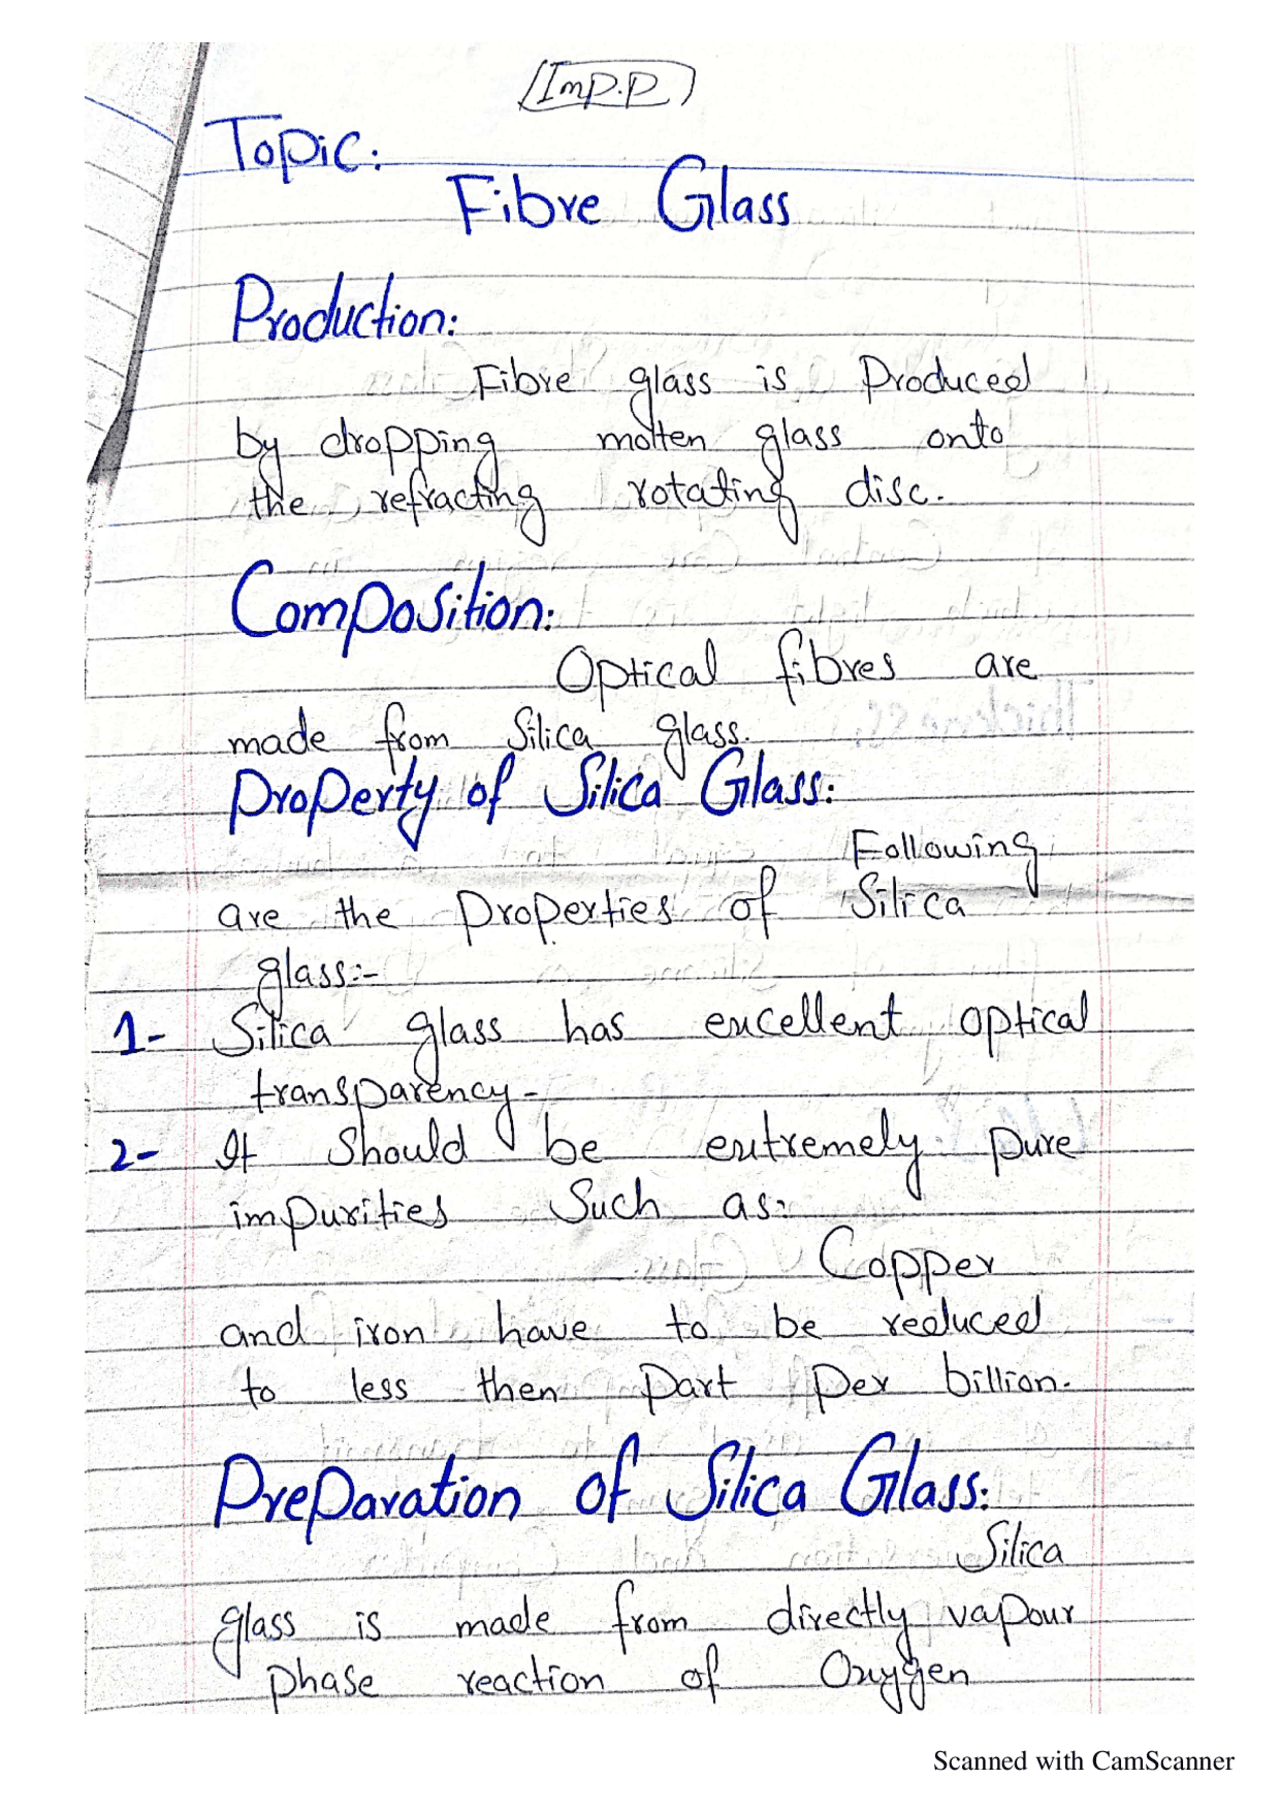 Imp.p
Topic:
Fibre Glass
Production:
Fibre glass is Produced
by dropping molten glass onto
the refracting rotating disc.
Composition:
Optical fibres are
made from Silica glass.
Property of Silica Glass:
Following
are the Properties of Silica
glass:-
1- Silica glass has excellent optical
transparency-
2- It should be extremely pure
impurities Such as:
Copper
and iron have to be reduced
to less then part per billion.
Preparation of Silica Glass:
Silica
glass is made from directly vapour
phase reaction of Oxygen
Scanned with CamScanner